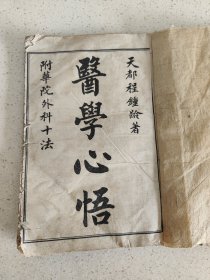 天都程鍾齡著
醫學心悟
附華院外科十法